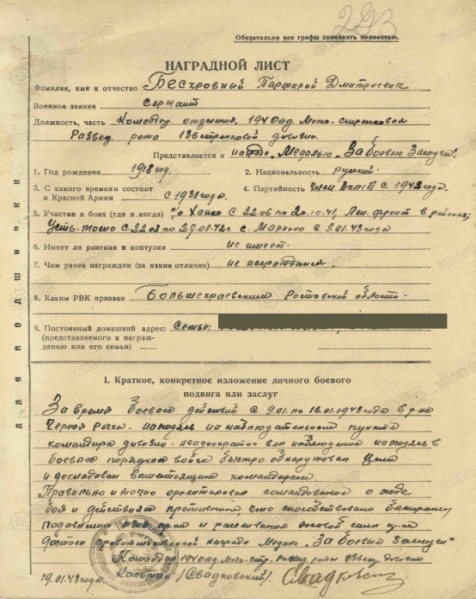 Обязательно все графы заполнить полностью.
НАГРАДНОЙ ЛИСТ
Фамилия, имя и отчество Бескровный Парфирий Дмитриевич
Военное звание Сержант
Должность, часть отделения, 194 отд. Мото-стрелковой
Развед. рота 136 стрелковой дивизии.
Представляется к награде „Медалью" За боевые Заслуги"
1. Год рождения 1918 год. 2. Национальность русский
3. С какого времени состоит в Красной Армии с 1938 года. 4. Партийность член ВКП(б) с 1942 года.
5. Участие в боях (где и когда) п/о Ханко с 22.06 по 20.10.41, Лен. фронт в районе
Усть-Тосно с 22.08 по 29.01.42 г. с. Марьино с 9.01.43 года
6. Имеет ли ранения и контузии не имеет.
7. Чем ранее награжден (за какие отличия) не награждался.
8. Каким РВК призван Большекраевским Ростовской области.
9. Постоянный домашний адрес: Семья:
(представляемого к награж-
дению или его семьи)
для подшивки
I. Краткое, конкретное изложение личного боевого
подвига или заслуг
За время боевых действий с 9.01 по 16.01.1943 года в р-не
Черной речки. находясь на наблюдательном пункте
командира дивизии неоднократно вел наблюдение находясь в
боевых порядках войск быстро обнаруживал цели
и докладывал вышестоящим командирам.
Правильно и точно ориентировал командование о ходе
боя и действиях противника что способствовало быстрому
подавлению огня пр-ка и живой силы пр-ка
Достоин правительственной награды Медаль „За боевые Заслуги"
Командир 194 отд. Мото-стр. развед. роты
Капитан /Свадковский/. Свадковский
19.01.43 года.